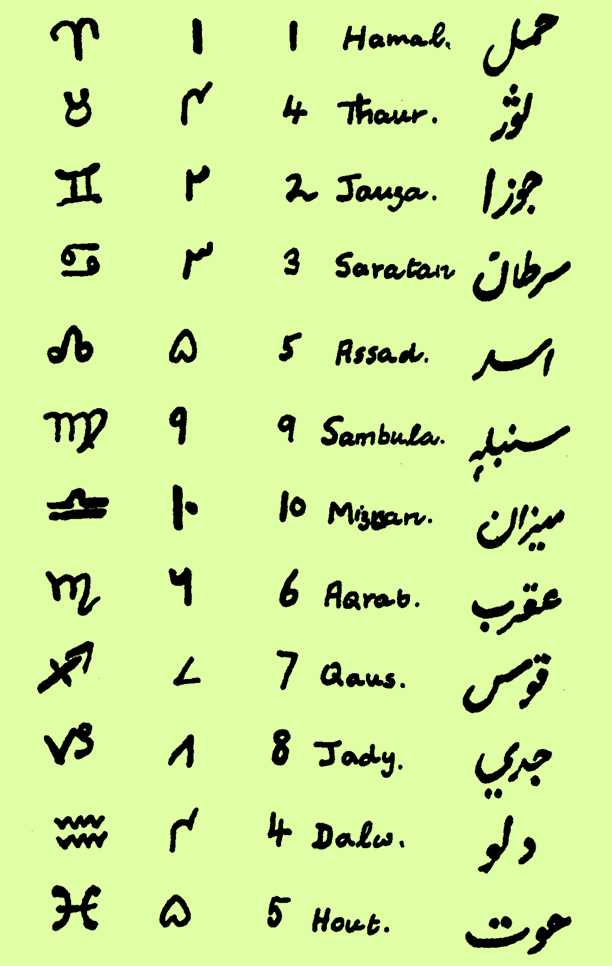 ♈ ۱ 1 Hamal. حمل
♉ ۴ 4 Thaur. ثور
♊ ۲ 2 Jauza. جوزا
♋ ۳ 3 Saratan سرطان
♌ ۵ 5 Assad. اسد
♍ ۹ 9 Sambula. سنبلہ
♎ ۱۰ 10 Mizan. میزان
♏ ۶ 6 Aqrab. عقرب
♐ ۷ 7 Qaus. قوس
♑ ۸ 8 Jady. جدي
♒ ۴ 4 Dalw. دلو
♓ ۵ 5 Hout. حوت